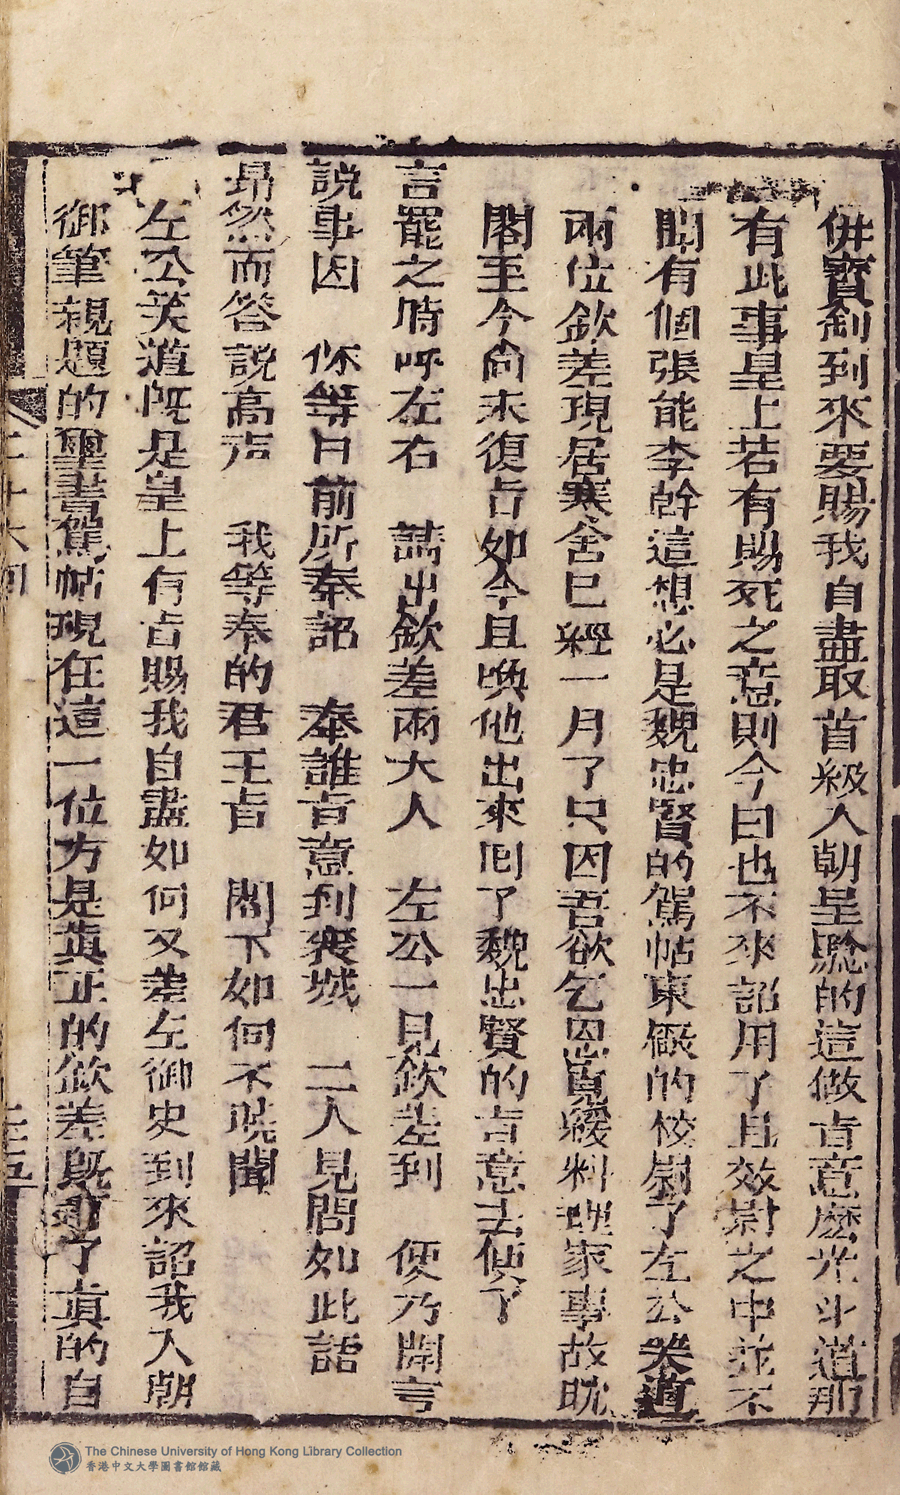 併寳剑到來要賜我自盡取首級入朝呈騐的這做㫖意麽光斗道那
有此事皇上若有賜死之意則今日也不來詔用了且效尉之中並不
聞有個張能李幹這想必是魏忠賢的駕帖東厰的校尉了左公笑道
兩位欽差現居寒舍已經一月了只因吾欲乞恩寬緩料理家事故眈
閣至今尚未復㫖如今且喚他出來囘了魏忠賢的言意去便了
言罷之時呼左右 請出欽差兩大人 左公一見欽差到 便乃開言
説事因 你等日前所奉詔 奉誰㫖意到襄城 二人見問如此語
昻然而答説高声 我等奉的君王㫖 閣下如何不曉聞
左公笑道既是皇上有㫖賜我自盡如何又差左御史到來詔我入朝
御筆親題的璽書駕帖現在這一位方是真正的欽差既有了真的自
二十六囘